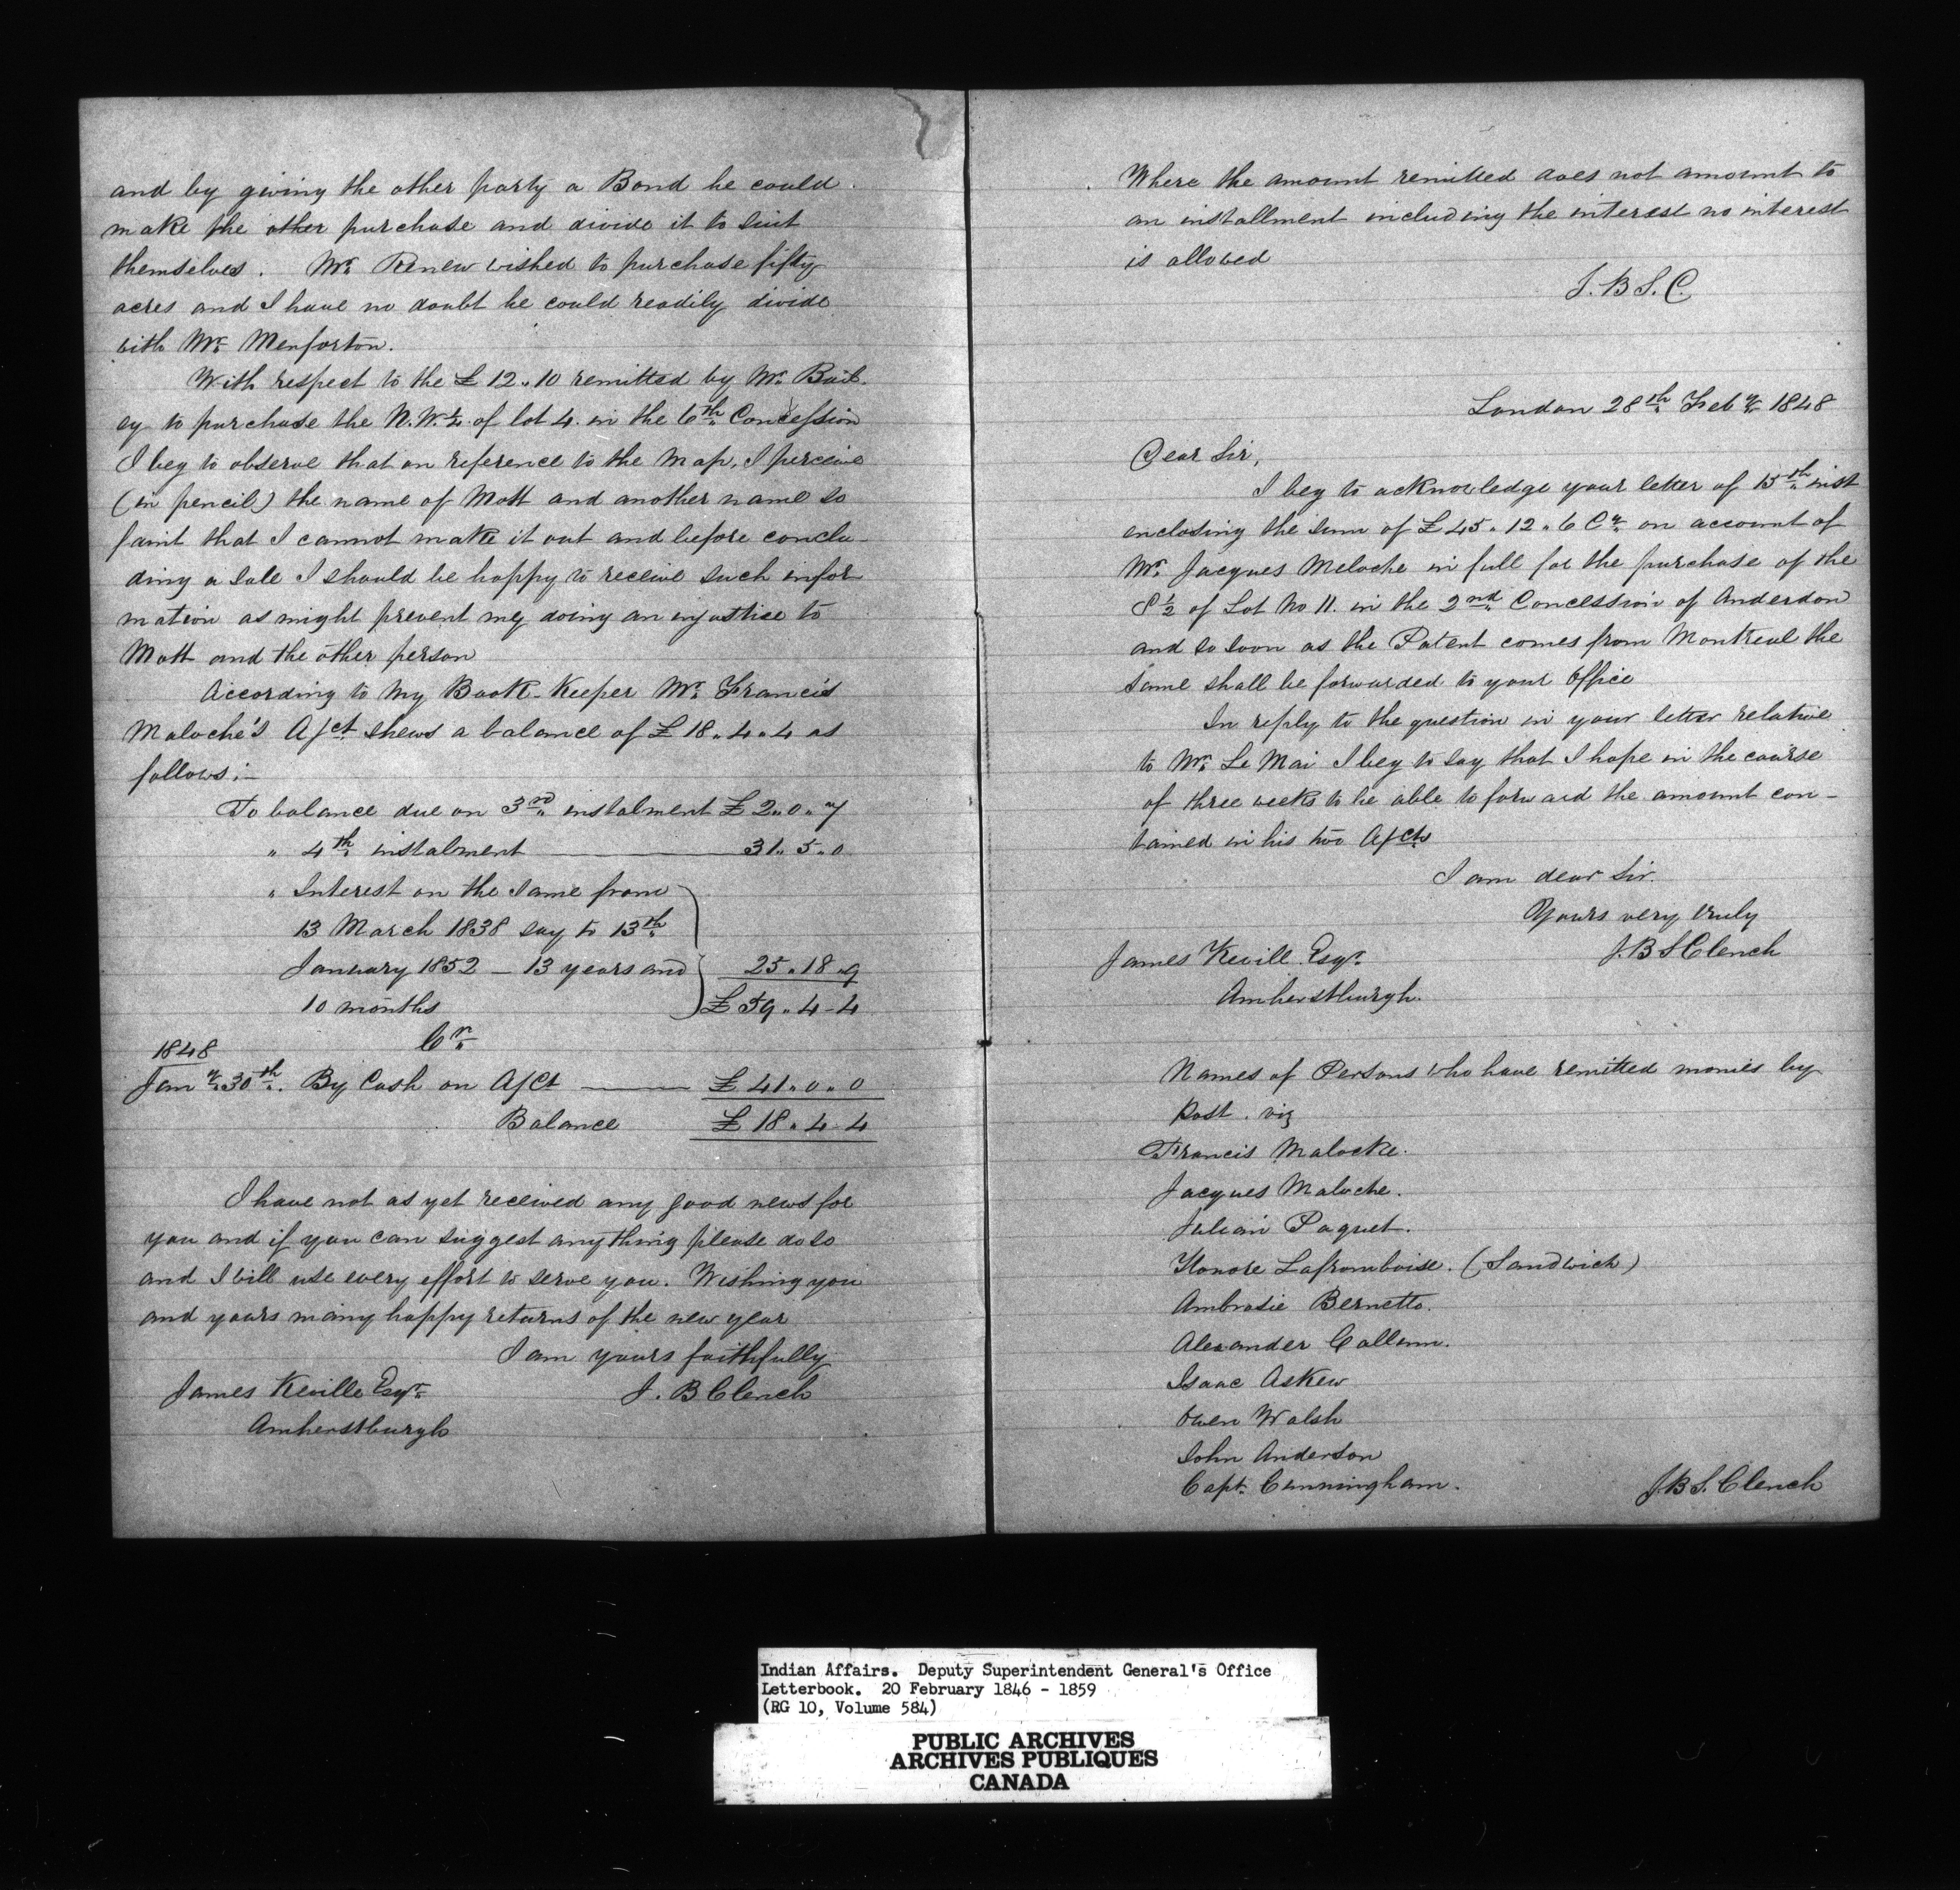 and by giving the other party a Bond he could
make the other purchase and divide it to suit
themselves. Mr. Renew wished to purchase fifty
acres and I have no doubt he could readily divide
with Mr. Menforton.
With respect to the £12.10 remitted by Mr. Bail-
ey to purchase the N.W. ¼ of lot 4. in the 6th Concession
I beg to observe that on reference to the Map, I perceive
(in pencil) the name of Mott and another name so
faint that I cannot make it out and before conclu-
ding a sale I should be happy to receive such infor
mation as might prevent my doing an injustice to
Mott and the other person
According to my Book-Keeper Mr. Francis
Maloche's A/ct shews a balance of £18.4.4 as
follows:-
To balance due on 3rd instalment £2.0.7
" 4th instalment 31.5.0
" Interest on the same from
13 March 1838 say to 13th
January 1852 - 13 years and 25.18.9
10 months £59.4-4
Cr.
1848
Jany 30th. By Cash on A/Ct £41.0.0
Balance £18.4-4
I have not as yet received any good news for
you and if you can suggest anything please do so
and I will use every effort to serve you. Wishing you
and yours many happy returns of the new year
I am yours faithfully
James Keville Esqr. J. B Clench
Amherstburgh
Where the amount remitted does not amount to
an installment including the interest no interest
is allowed
J. B S. C.
London 28th Feby 1848
Dear Sir,
I beg to acknowledge your letter of 15th inst
enclosing the sum of £45.12.6 Cy on account of
Mr. Jacques Meloche in full for the purchase of the
S ½ of Lot No 11. in the 2nd Concession of Anderdon
and so soon as the Patent comes from Montreal the
same shall be forwarded to your Office
In reply to the question in your letter relative
to Mr. Le Mai I beg to say that I hope in the course
of three weeks to be able to forward the amount con-
tained in his two A/cts
I am dear Sir.
Yours very truly
James Kevill Esqr. J. B S Clench
Amherstburgh.
Names of Persons who have remitted monies by
Post. viz
Francis Maloske.
Jacques Maloche.
Julian Paquet.
Honore Lafromboise. (Sandwich)
Ambrosie Bernetto.
Alexander Callam.
Isaac Askew
Owen Walsh
John Anderson
Capt. Cunningham. J. B S. Clench
Indian Affairs. Deputy Superintendent General's Office
Letterbook. 20 February 1846 - 1859
(RG 10, Volume 584)
PUBLIC ARCHIVES
ARCHIVES PUBLIQUES
CANADA